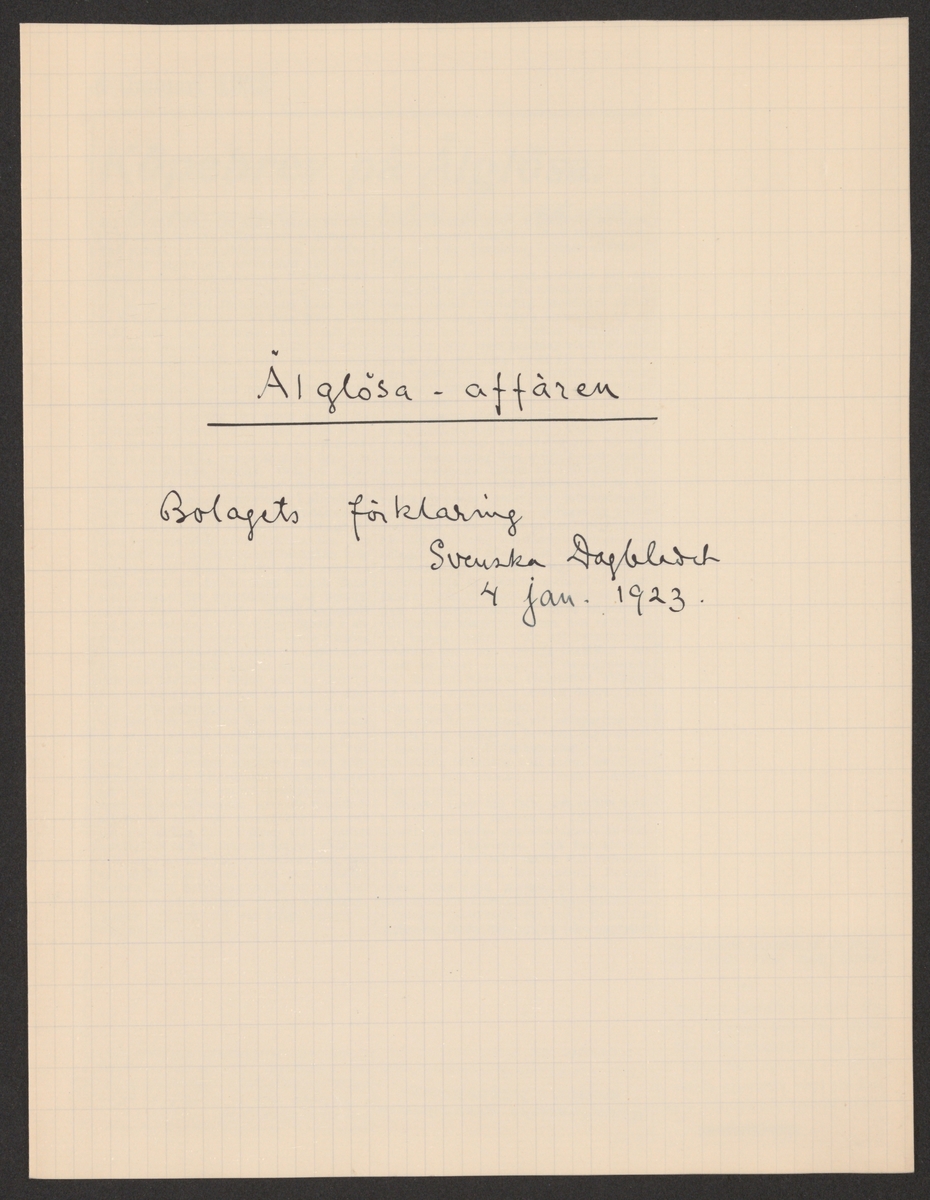 Älglösa - affären
Bolagets förklaring
Svenska Dagbladet
4 jan. 1923.